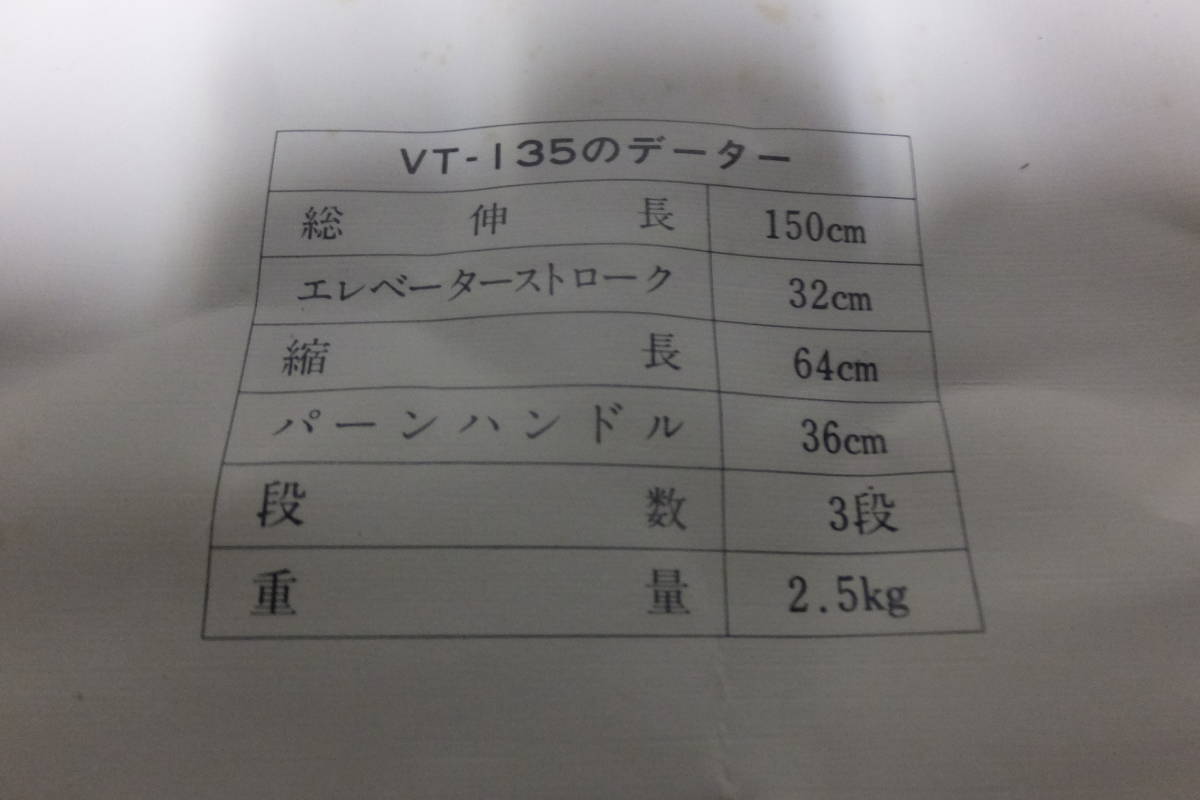 VT-135のデーター
総伸長 150cm
エレベーターストローク 32cm
縮長 64cm
パーンハンドル 36cm
段数 3段
重量 2.5kg